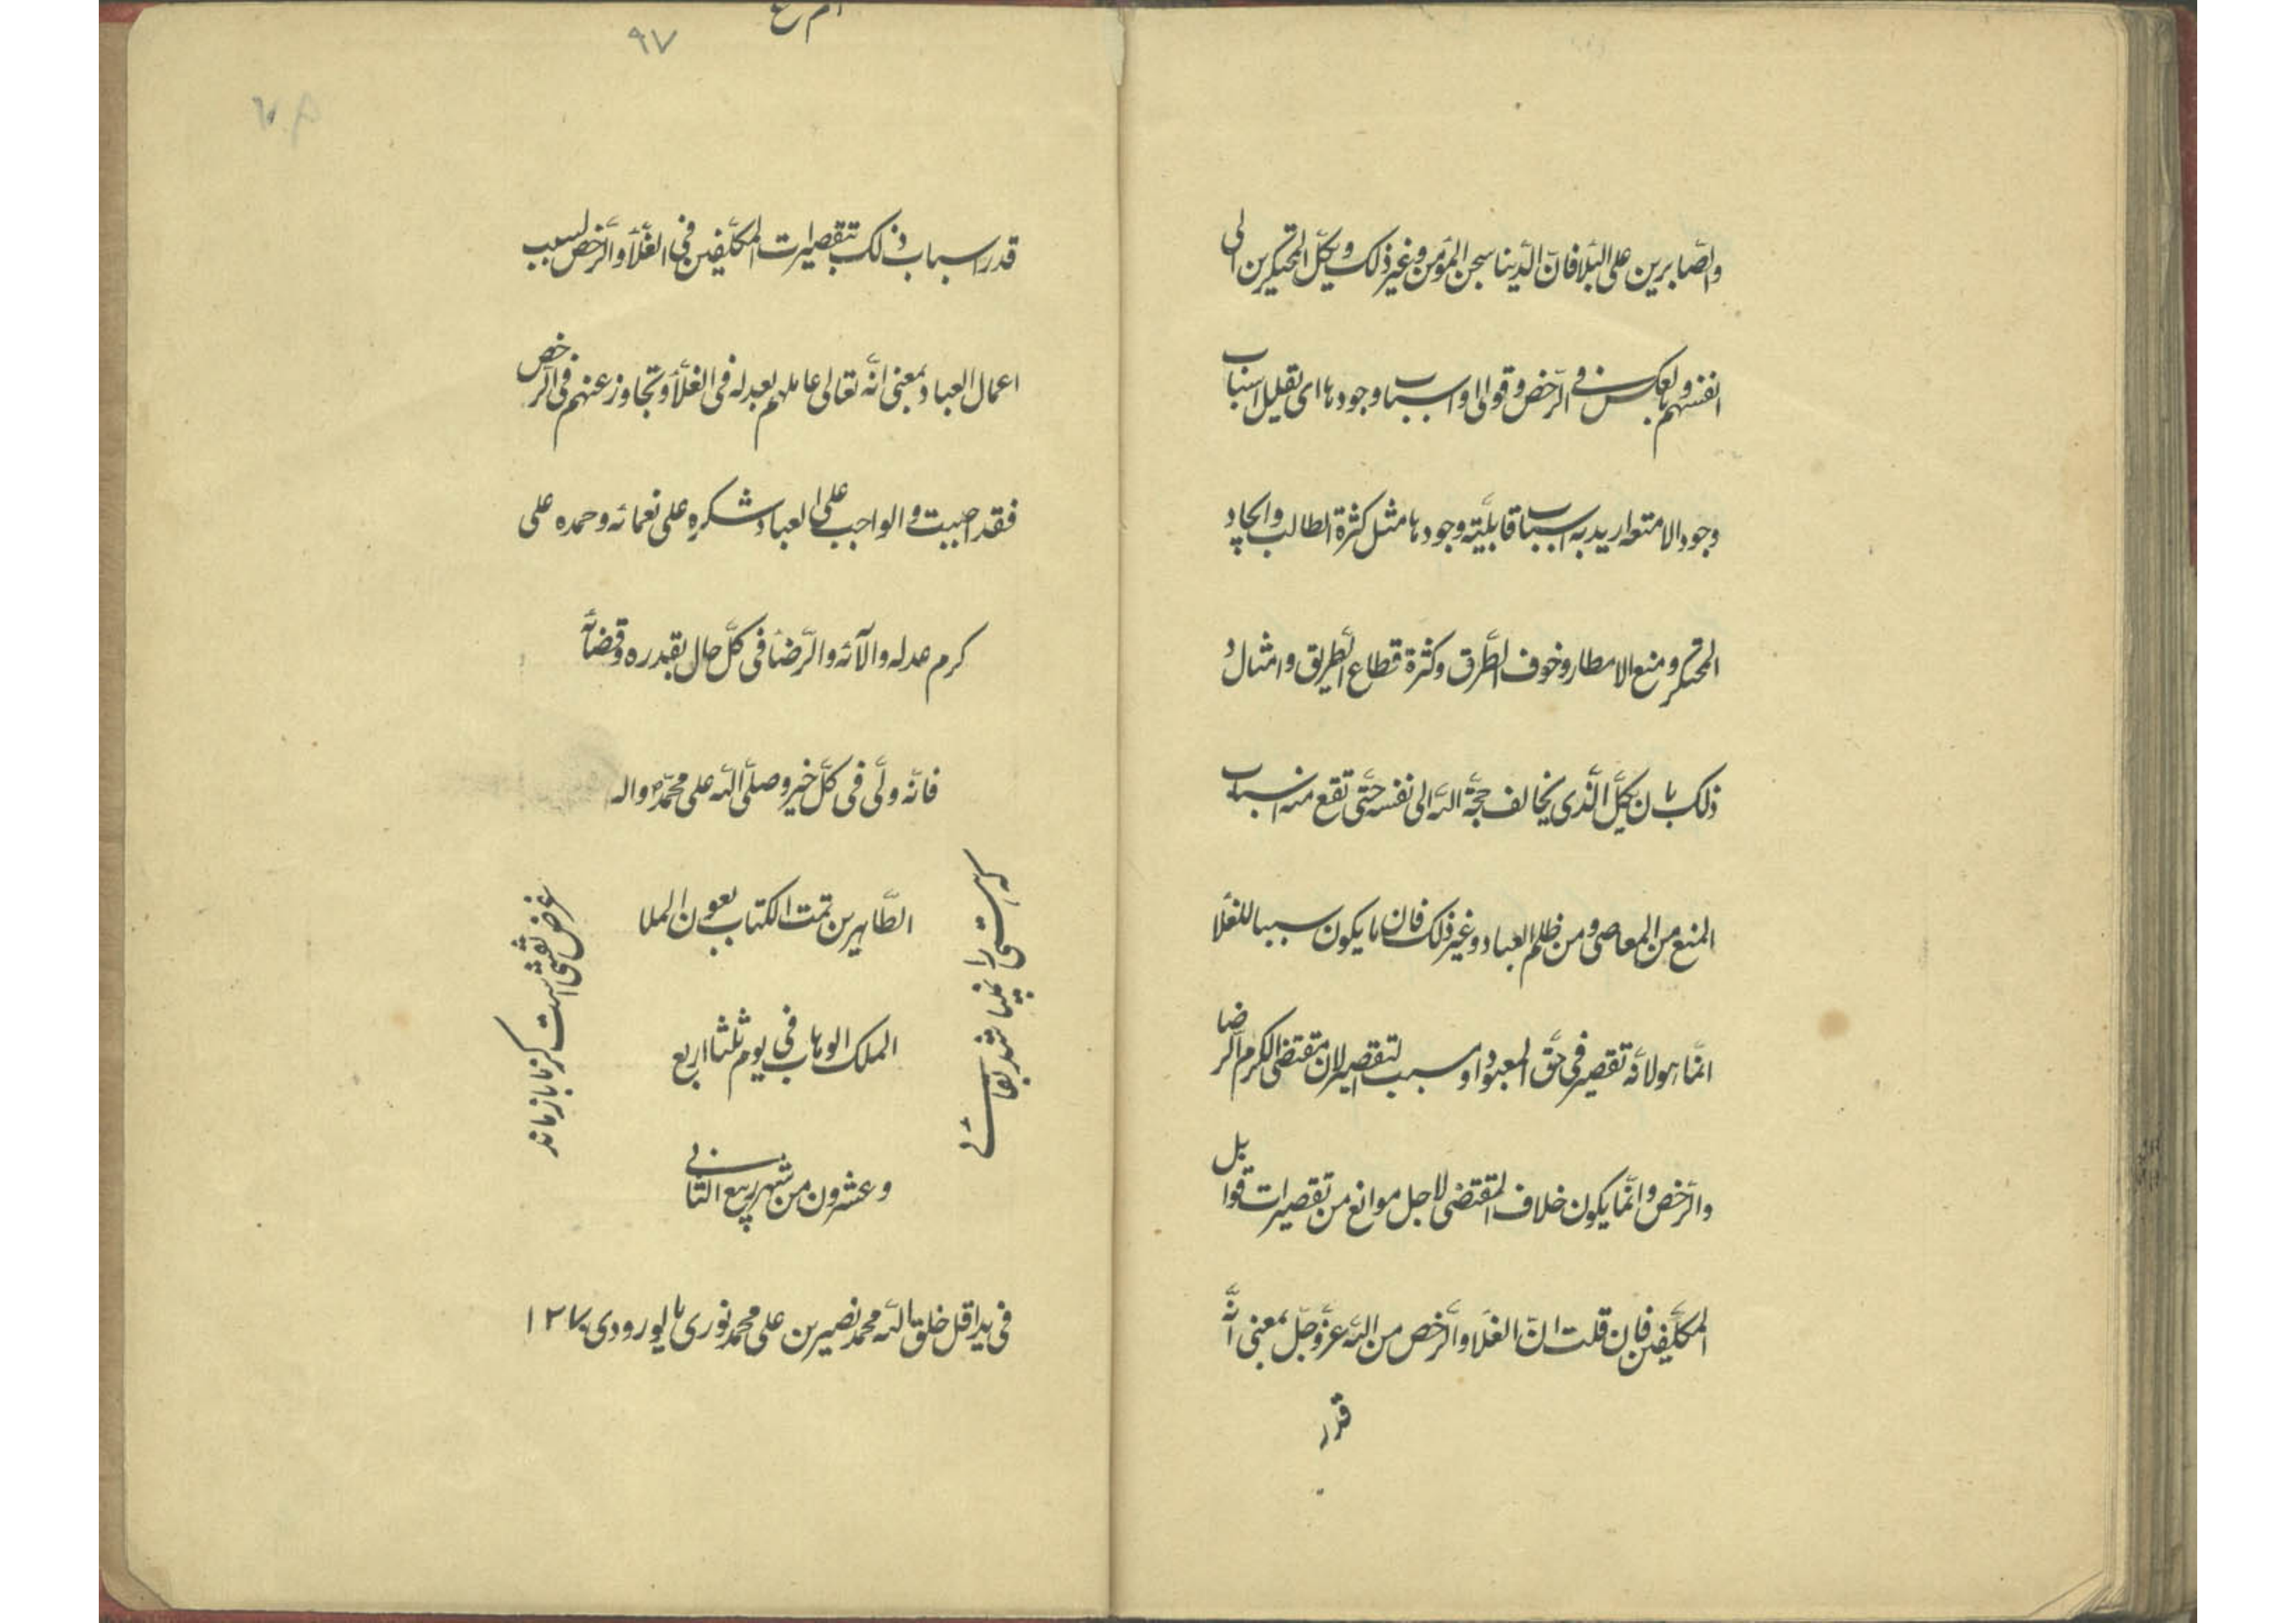 والصّابرين على البلا فانّ الدّينا سجن المؤمن وغير ذلك ويكل المحتكرين الى
انفسهم وبالعكس فى الرّخص وقولى او اسباب وجودها اى تقليل اسباب
وجود الامتعه اريد به اسباب قابليّة وجودها مثل كثرة الطالب وايجاد
المحتكر ومنع الامطار وخوف الطّرق وكثرة قطاع الطّريق وامثال
ذلك بان يكل الّذى يخالف حجّة الله الى نفسه حتّى تقع منه اسباب
المنع من المعاصى ومن ظلم العباد وغير ذلك فان ما يكون سببا للغلا
انّما هو لانّه تقصير فى حقّ المعبود او مسبب لتقصير لان مقتضى الكرم الرضا
والرّخص وانّما يكون خلاف المقتضى لاجل موانع من تقصيرات قوابل
المكلّفين فان قلت انّ الغلا والرّخص من الله عزّ وجلّ بمعنى انّه
قدّر
٩٧
قدر اسباب ذلك بتقصيرات المكلّفين فى الغلا والرّخص لسبب
اعمال العباد بمعنى انّه تعالى عاملهم بعدله فى الغلا وتجاوز عنهم فى الرخص
فقد اصبت والواجب على العباد شكره على نعمائه وحمده على
كرم عدله والآئه والرّضا فى كلّ حال بقدره وقضائه
فانّه ولىّ فى كلّ خير وصلّى الله على محمّد واله
الطّاهرين تمت الكتاب بعون الملا
الملك الوهاب فى يوم ثلثا اربع
وعشرون من شهر ربيع الثانى
فى يد اقل خلق الله محمد نصير بن على محمد نورى بالورودى ١٢٧٠
غرض نقشى است كز ما باز ماند
كه هستى را نميبا شد بقائى